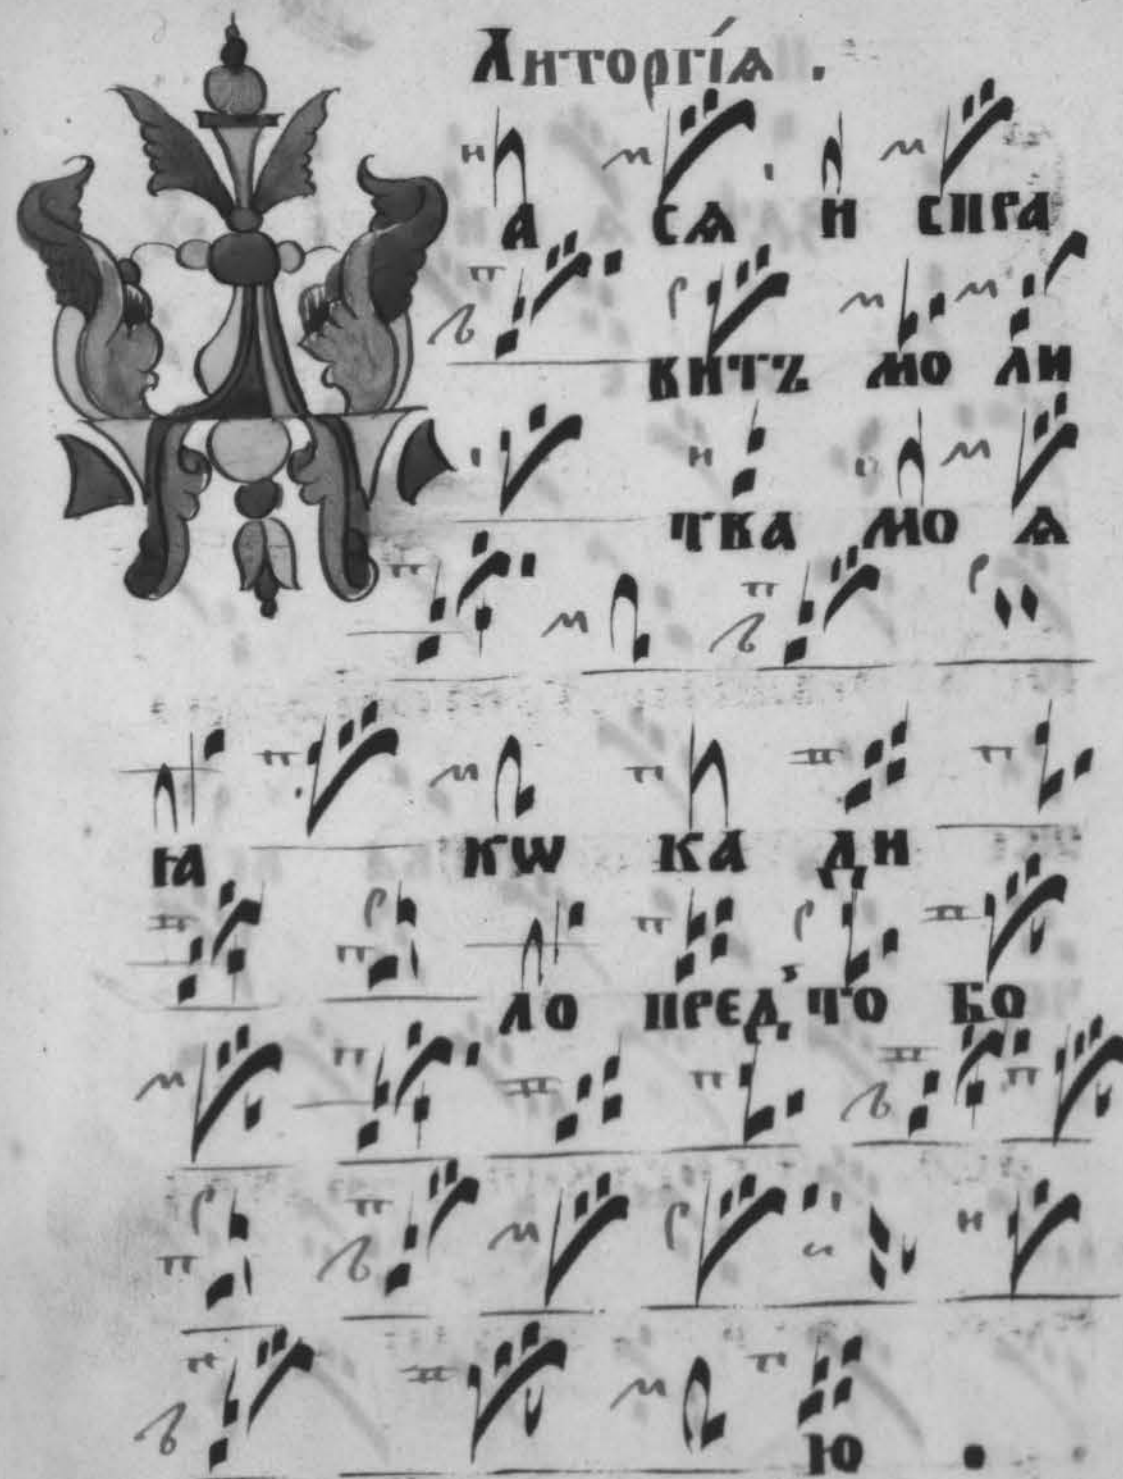 Литоргі́ѧ .
Да сѧ и спра
витъ мо ли
тва мо ѧ
ꙗ кѡ ка ди
ло пред̾ то бо
ю .